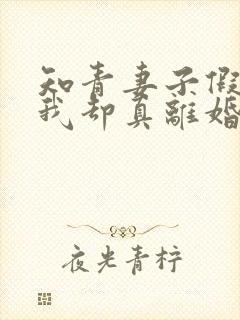 知青妻子假
我却真離婚
夜光青柠